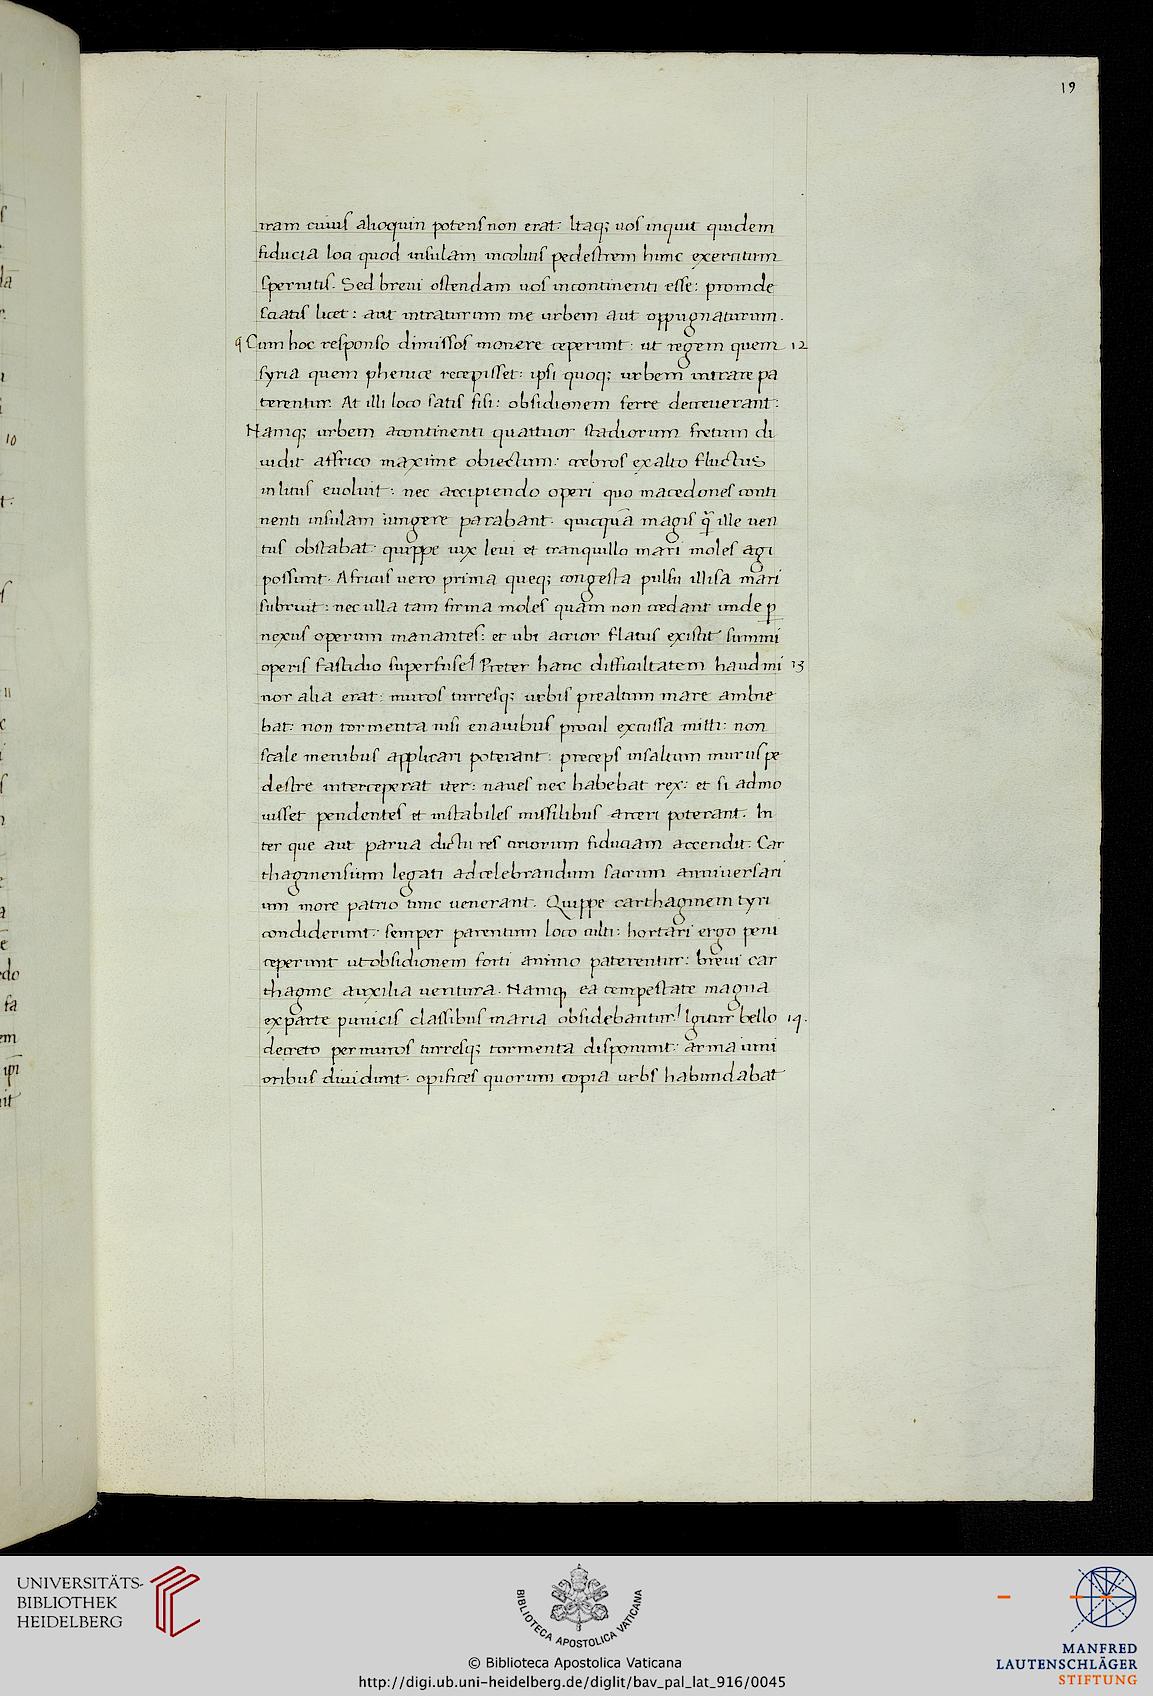 19
iram cuius alioquin potens non erat: Itaq; uos inquit quidem
fiducia loci quod insulam incolitis pedestrem hunc exercitum
spernitis. Sed breui ostendam uos incontinenti esse: proinde
sciatis licet: aut intraturum me urbem aut oppugnaturum.
Cum hoc responso dimissos monere ceperunt: ut regem quem 12
syria quem phenice recepisset: ipsi quoq; urbem intrare pa
terentur. At illi loco satis fisi: obsidionem ferre decreuerant:
Namq; urbem acontinenti quattuor stadiorum fretum di
uidit affrico maxime obiectum: crebros exalto fluctus
inlitus euoluit: nec accipiendo operi quo macedones conti
nenti insulam iungere parabant. quicquā magis q̄ ille uen
tus obstabat: quippe uix leui et tranquillo mari moles agi
possunt. Africus uero prima queq; congesta pulsu illisa mari
subruit: nec ulla tam firma moles quam non cedant unde p̱
nexus operum manantes: et ubi acrior flatus existit summi
operis fastidio superfuse! Preter hanc difficultatem haud mi 13
nor alia erat: muros turresq; urbis prealtum mare ambie
bat: non tormenta nisi enauibus procul excussa mitti: non
scale menibus applicari poterant: preceps insaltum murus pe
destre interceperat iter: naues nec habebat rex: et si admo
uisset pendentes et instabiles missilibus arceri poterant. In
ter que aut parua dictu res tiriorum fiduciam accendit: Car
thaginensium legati adcelebrandum sacrum anniuersari
um more patrio tunc uenerant. Quippe carthaginem tyri
condiderunt: semper parentum loco culti: hortari ergo peni
ceperunt utobsidionem forti animo paterentur: breui car
thagine auxilia uentura. Namq; ea tempestate magna
exparte punicis classibus maria obsidebantur! Igitur bello 14.
decreto permuros turresq; tormenta disponunt: arma iuni
oribus diuidunt. opifices quorum copia urbs habundabat
10
11
UNIVERSITÄTS-
BIBLIOTHEK
HEIDELBERG
BIBLIOTECA APOSTOLICA VATICANA
© Biblioteca Apostolica Vaticana
http://digi.ub.uni-heidelberg.de/diglit/bav_pal_lat_916/0045
MANFRED
LAUTENSCHLÄGER
STIFTUNG